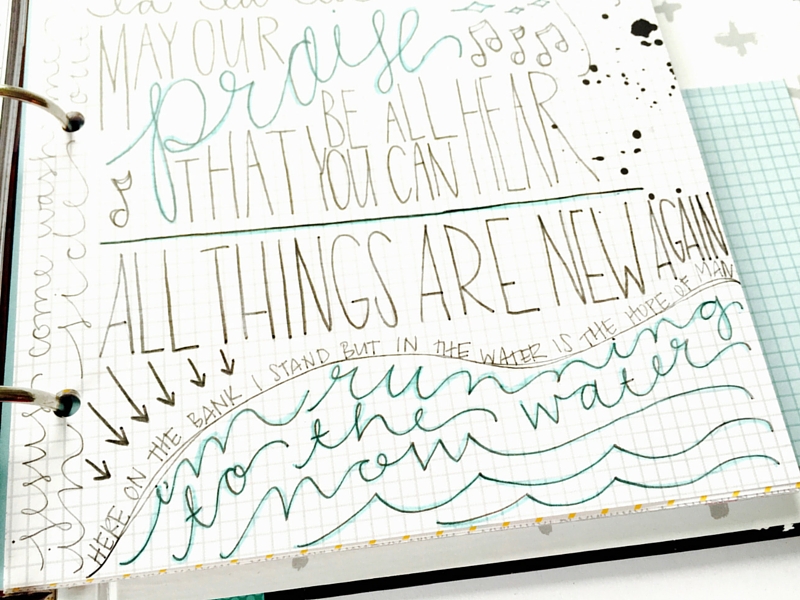 MAY OUR praise
BE ALL
THAT YOU CAN HEAR
ALL THINGS ARE NEW AGAIN
HERE ON THE BANK I STAND BUT IN THE WATER IS THE HOPE OF MAN
im running
to the water
now
jesus come wash